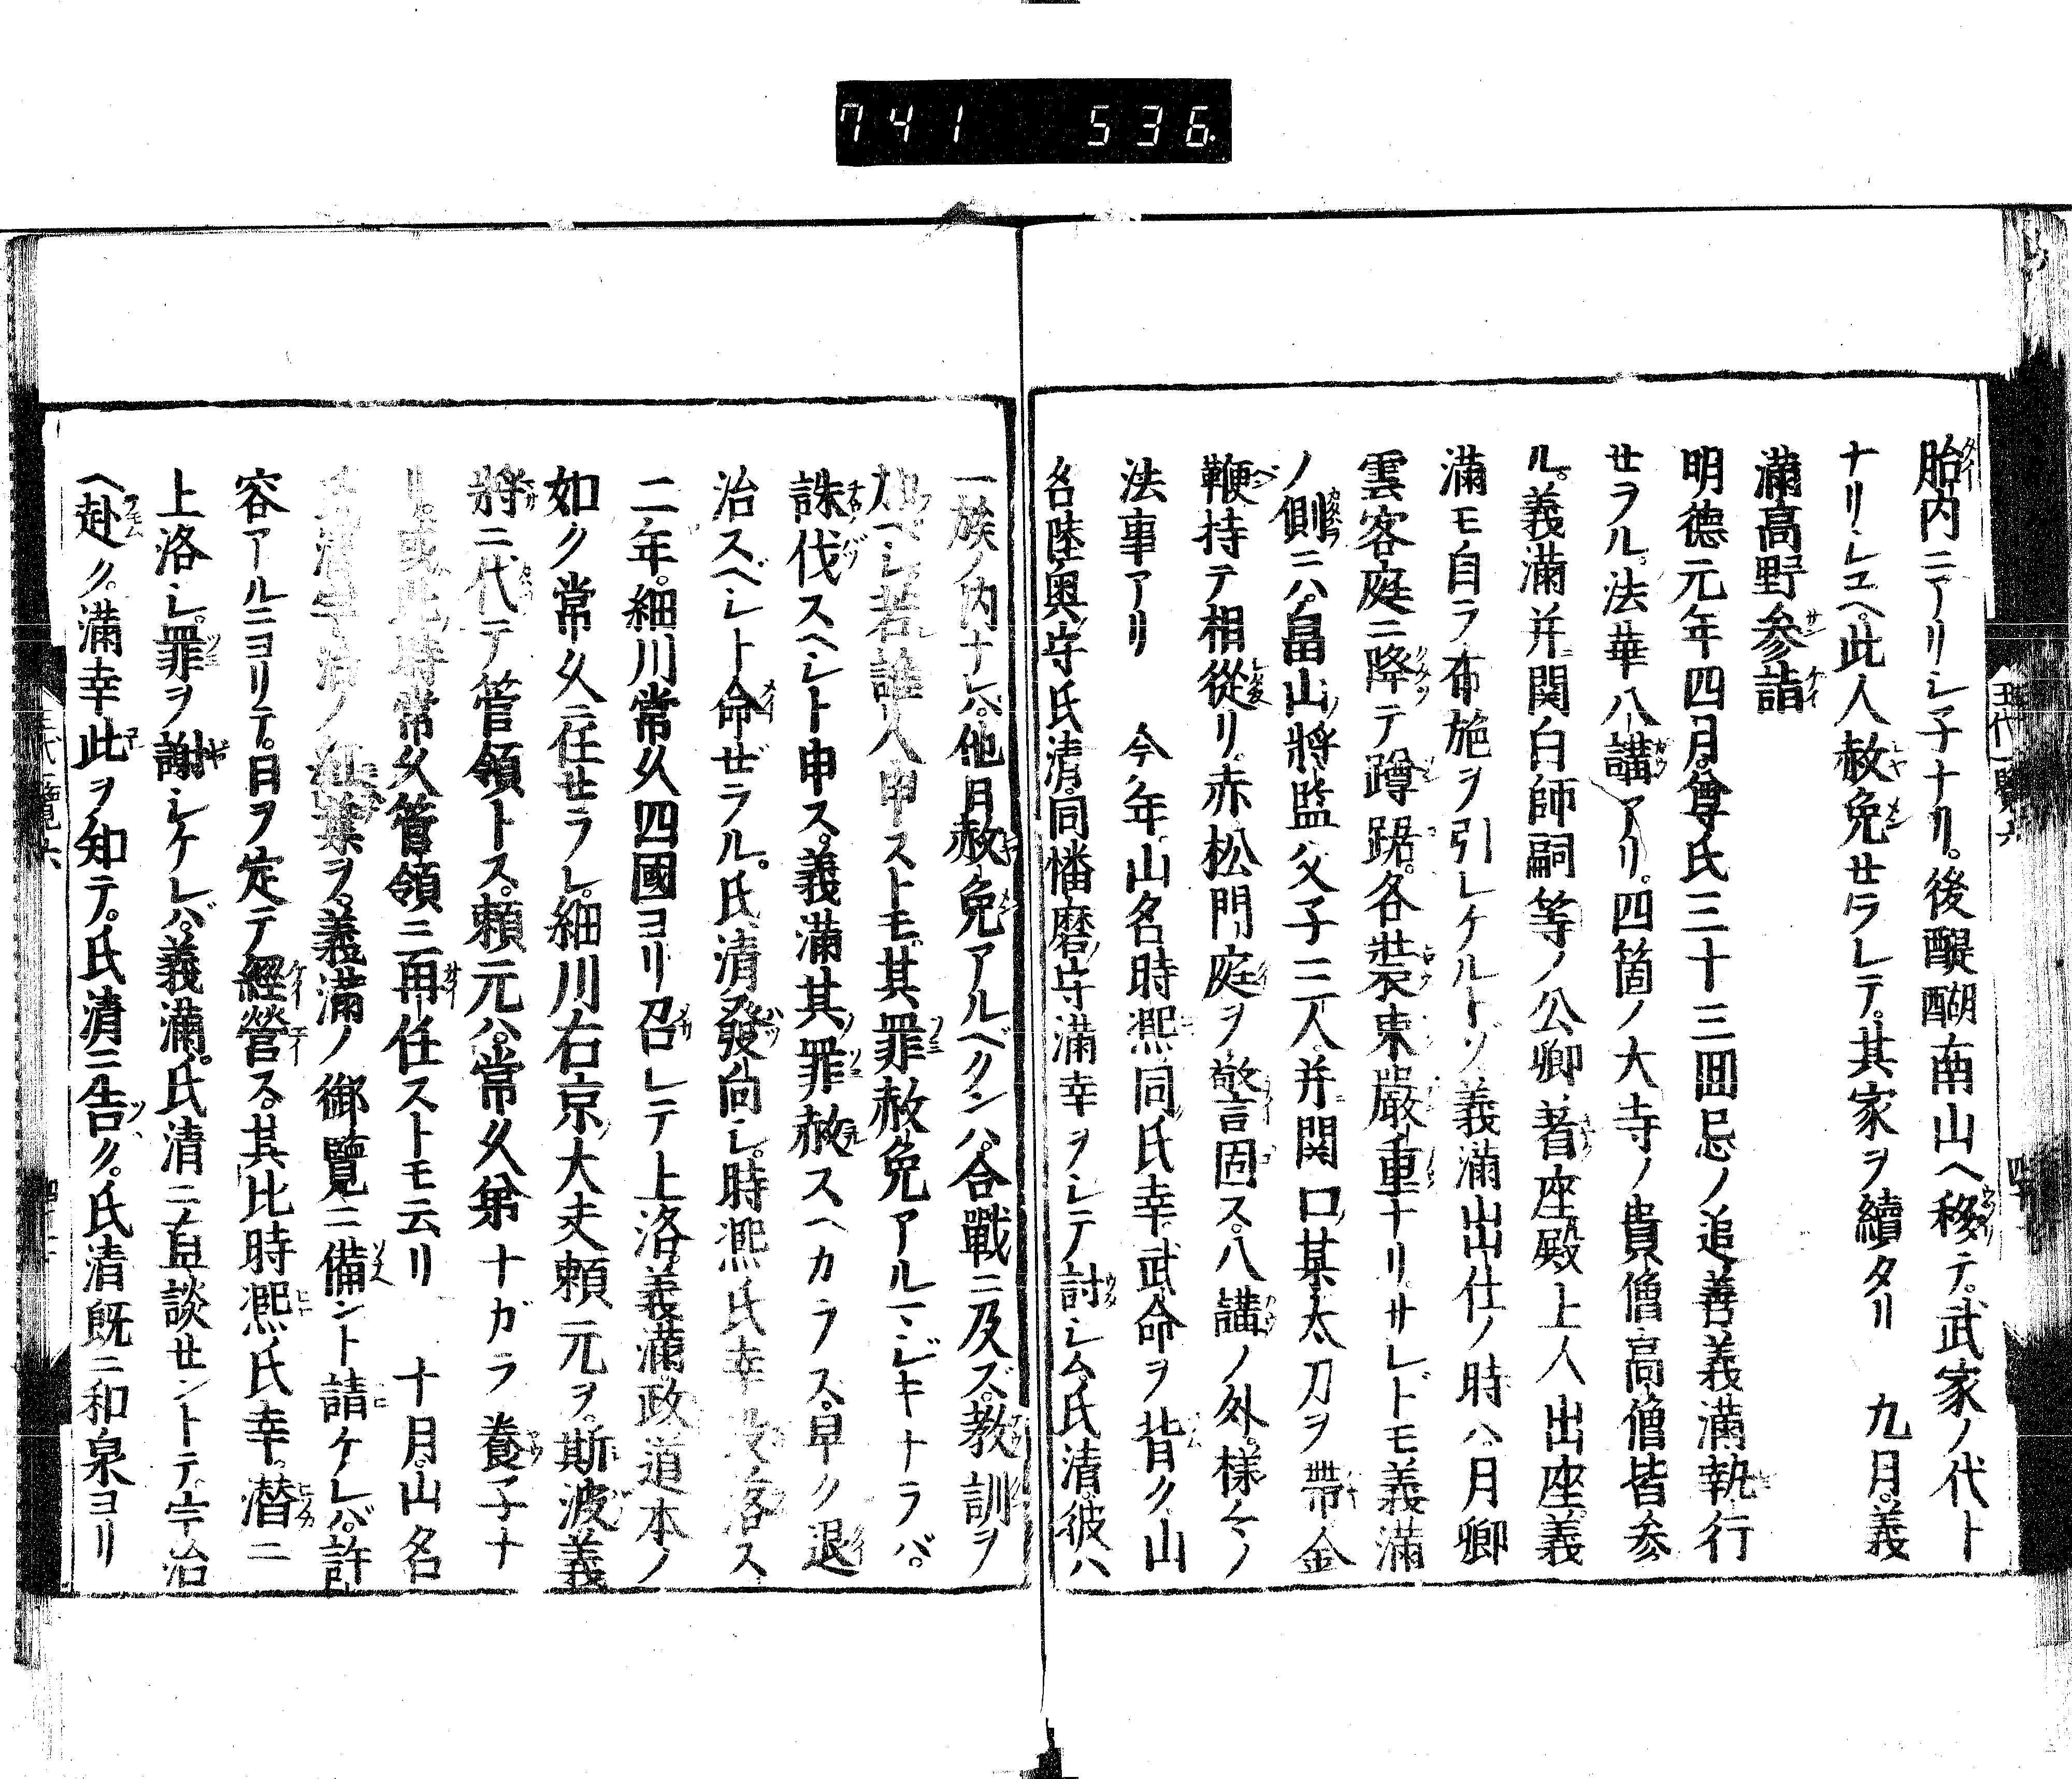 741 536
胎内ニアリシ子ナリ。後醍醐南山ヘ移テ。武家ノ代ト
ナリシユヘ。此人赦免セラレテ。其家ヲ續タリ 九月。義
滿高野參詣
明德元年四月。尊氏三十三回忌ノ追善義滿執行
セラル。法華八講アリ。四箇ノ大寺ノ貴僧高僧皆參
ル。義滿并関白師嗣等ノ公卿著座殿上人出座。義
滿モ自ラ布施ヲ引レケルトゾ義滿出仕ノ時ハ月卿
雲客庭ニ降テ蹲踞。各裝束嚴重ナリ。サレドモ義滿
ノ側ニハ。畠山將監父子三人。并関口某太刀ヲ帶金
鞭持テ相從リ。赤松門庭ヲ警固ス。八講ノ外。樣々ノ
法事アリ 今年。山名時凞同氏幸。武命ヲ背ク。山
名陸奥守氏清。同播磨守滿幸ヲシテ討シム。氏清。彼ハ
一族ノ内ナレバ。他月赦免アルベクンバ。合戰ニ及ズ。教訓ヲ
加ベシ若誰人申ストモ。其罪赦免アルマジキナラバ。
誅伐スヘシト申ス。義滿其罪赦スヘカラス。早ク退
治スベシト命ゼラル。氏清發向シ。時凞氏幸沒落ス
二年。細川常久四國ヨリ召レテ上洛。義滿政道本ノ
如ク常久ニ任セラレ。細川右京大夫頼元ヲ。斯波義
將ニ代テ管領トス。頼元ハ。常久弟ナガラ養子ナ
リ。或此時常久管領ニ再任ストモ云リ 十月。山名
氏清宇治ノ紅葉ヲ。義滿ノ御覽ニ備ント請ケレバ。許
容アルニヨリテ。日ヲ定テ經營ス。其比時凞氏幸。潜ニ
上洛シ。罪ヲ謝シケレバ。義滿。氏清ニ直談セントテ。宇治
ヘ赴ク。滿幸此ヲ知テ。氏清ニ告ク。氏清既ニ和泉ヨリ